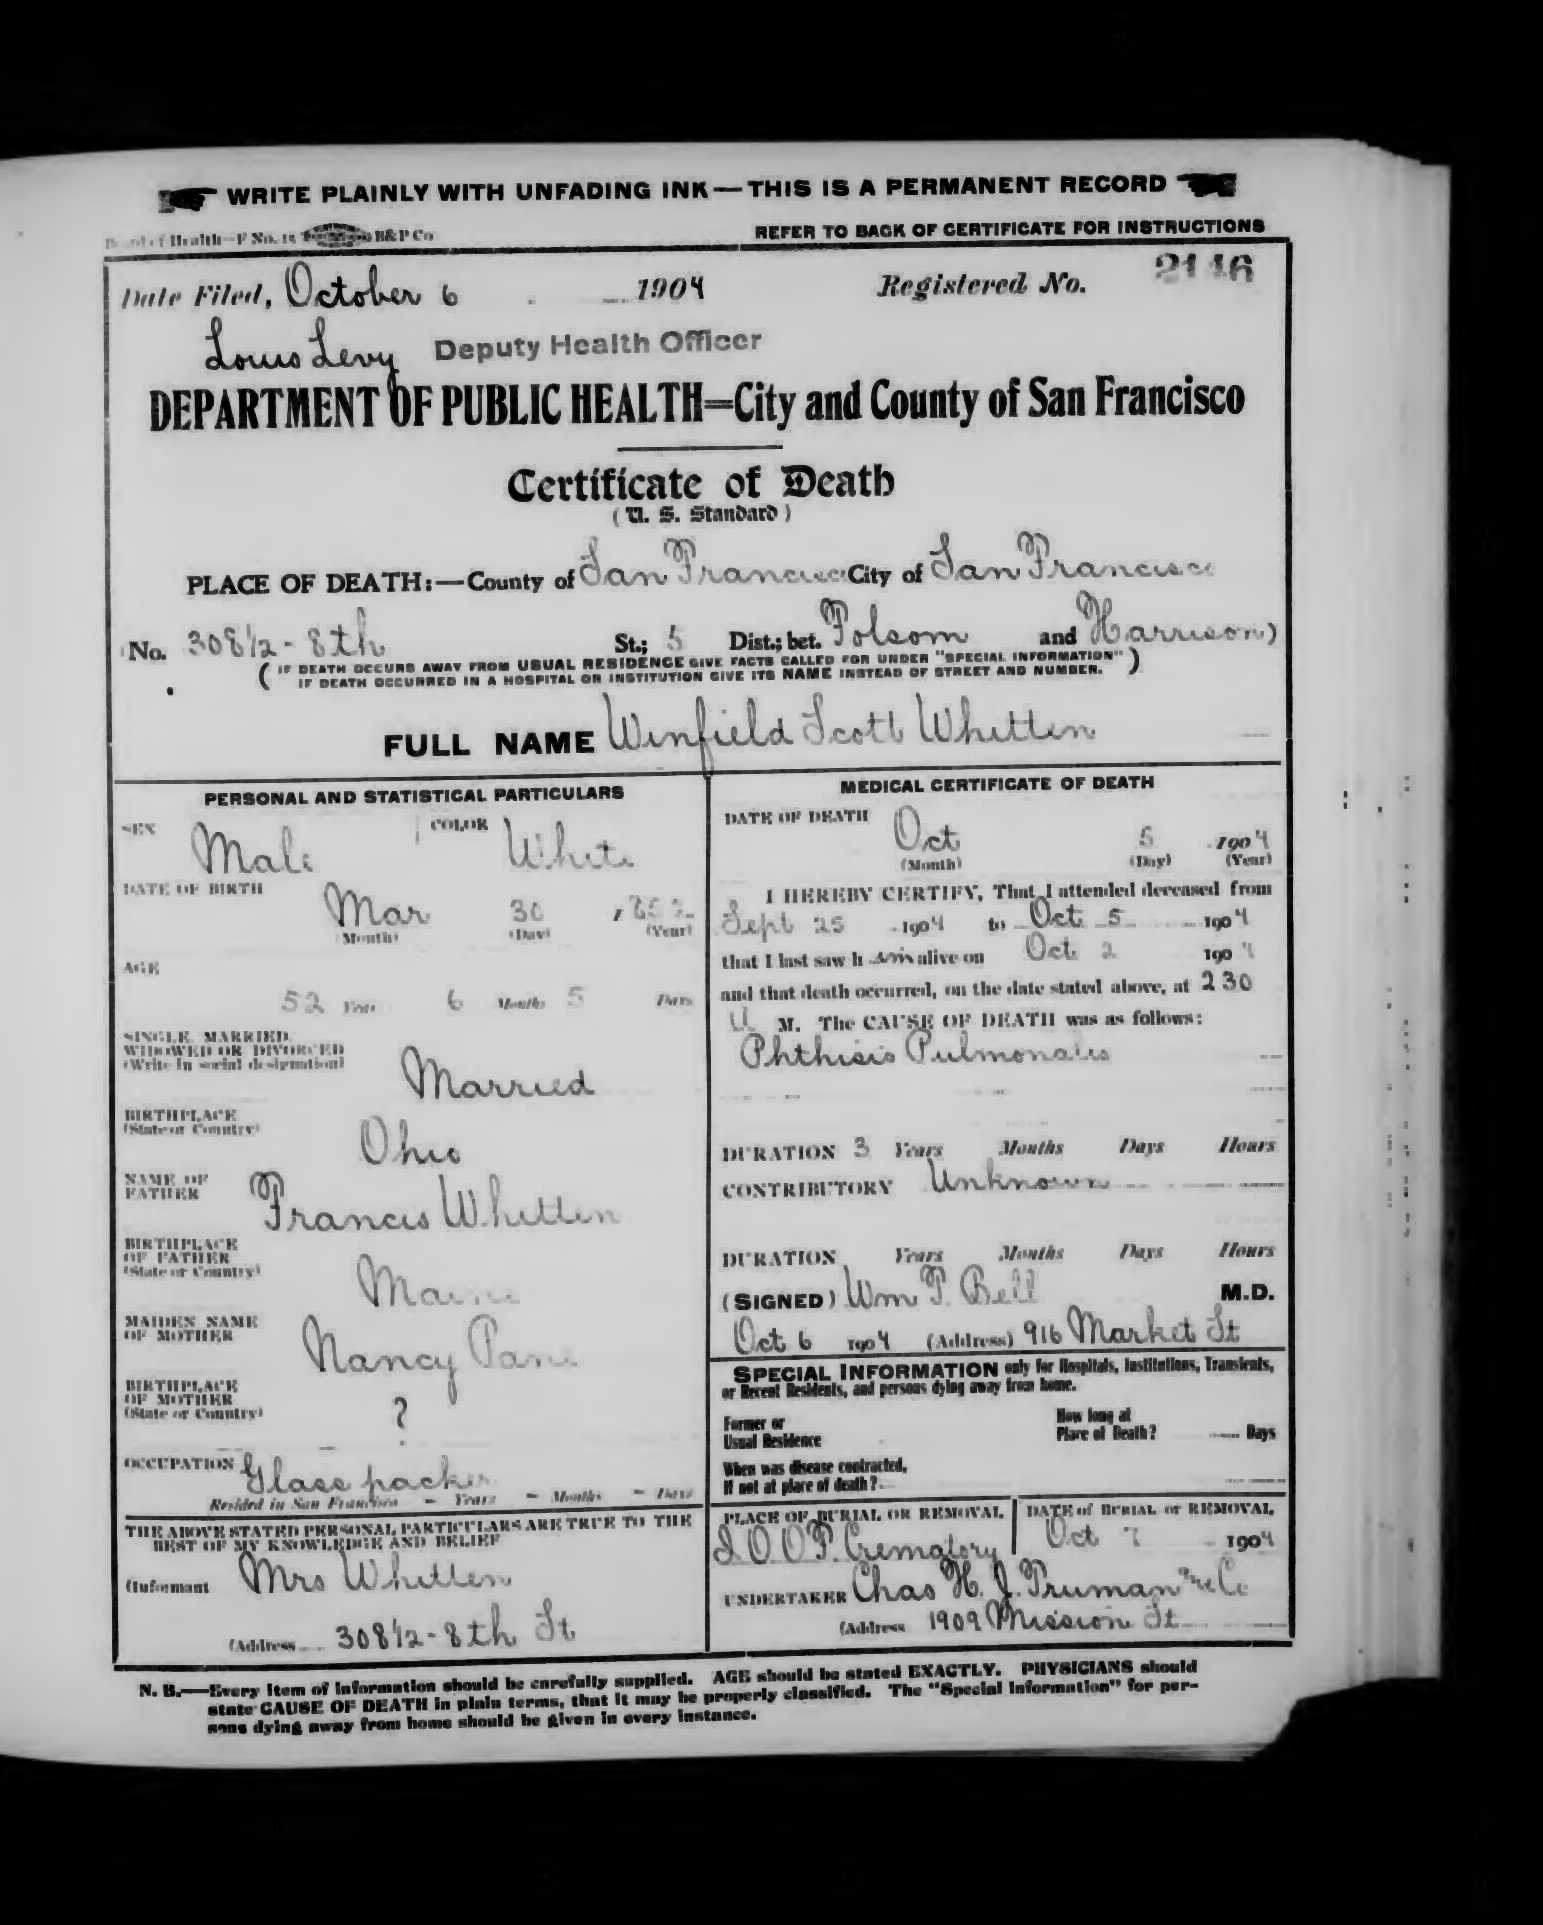 WRITE PLAINLY WITH UNFADING INK — THIS IS A PERMANENT RECORD
Board of Health—F No. 15 B&P Co
REFER TO BACK OF CERTIFICATE FOR INSTRUCTIONS
Date Filed, October 6 1904 Registered No. 2146
Louis Levy Deputy Health Officer
DEPARTMENT OF PUBLIC HEALTH=City and County of San Francisco
Certificate of Death
(U. S. Standard)
PLACE OF DEATH:—County of San Francisco City of San Francisco
No. 308 1/2 - 8th St.; 5 Dist.; bet. Folsom and Harrison)
(IF DEATH OCCURS AWAY FROM USUAL RESIDENCE GIVE FACTS CALLED FOR UNDER "SPECIAL INFORMATION"
IF DEATH OCCURRED IN A HOSPITAL OR INSTITUTION GIVE ITS NAME INSTEAD OF STREET AND NUMBER.)
FULL NAME Winfield Scott Whitten
PERSONAL AND STATISTICAL PARTICULARS
SEX Male COLOR White
DATE OF BIRTH Mar 30 1852
(Month) (Day) (Year)
AGE
52 Years 6 Months 5 Days
SINGLE, MARRIED,
WIDOWED OR DIVORCED
(Write in social designation)
Married
BIRTHPLACE
(State or Country)
Ohio
NAME OF
FATHER
Francis Whitten
BIRTHPLACE
OF FATHER
(State or Country)
Maine
MAIDEN NAME
OF MOTHER
Nancy
BIRTHPLACE
OF MOTHER
(State or Country)
?
OCCUPATION Glass packer
Resided in San Francisco - Years - Months - Days
THE ABOVE STATED PERSONAL PARTICULARS ARE TRUE TO THE
BEST OF MY KNOWLEDGE AND BELIEF
(Informant Mrs Whitten
(Address 308 1/2 - 8th St
MEDICAL CERTIFICATE OF DEATH
DATE OF DEATH Oct 5 1904
(Month) (Day) (Year)
I HEREBY CERTIFY, That I attended deceased from
Sept 25 1904 to Oct 5 1904
that I last saw him alive on Oct 2 1904
and that death occurred, on the date stated above, at 2 30
a M. The CAUSE OF DEATH was as follows:
Phthisis Pulmonalis
DURATION 3 Years Months Days Hours
CONTRIBUTORY Unknown
DURATION Years Months Days Hours
(SIGNED) Wm P. Bell M.D.
Oct 6 1904 (Address) 916 Market St
SPECIAL INFORMATION only for Hospitals, Institutions, Transients,
or Recent Residents, and persons dying away from home.
Former or
Usual Residence
How long at
Place of Death? Days
When was disease contracted,
If not at place of death?
PLACE OF BURIAL OR REMOVAL
I.O.O.F. Crematory
DATE of BURIAL or REMOVAL
Oct 7 1904
UNDERTAKER Chas H. J. Truman & Co
(Address 1909 Mission St
N. B.—Every item of information should be carefully supplied. AGE should be stated EXACTLY. PHYSICIANS should
state CAUSE OF DEATH in plain terms, that it may be properly classified. The "Special Information" for per-
sons dying away from home should be given in every instance.